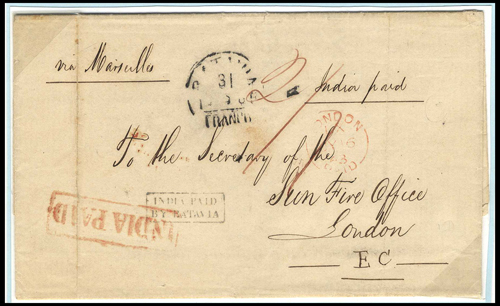 via Marseilles
India paid
BATAVIA
31
FRANCO
2/
A
LONDON
To the Secretary of the
Sun Fire Office
London
E C
INDIA PAID
BY BATAVIA
INDIA PAID